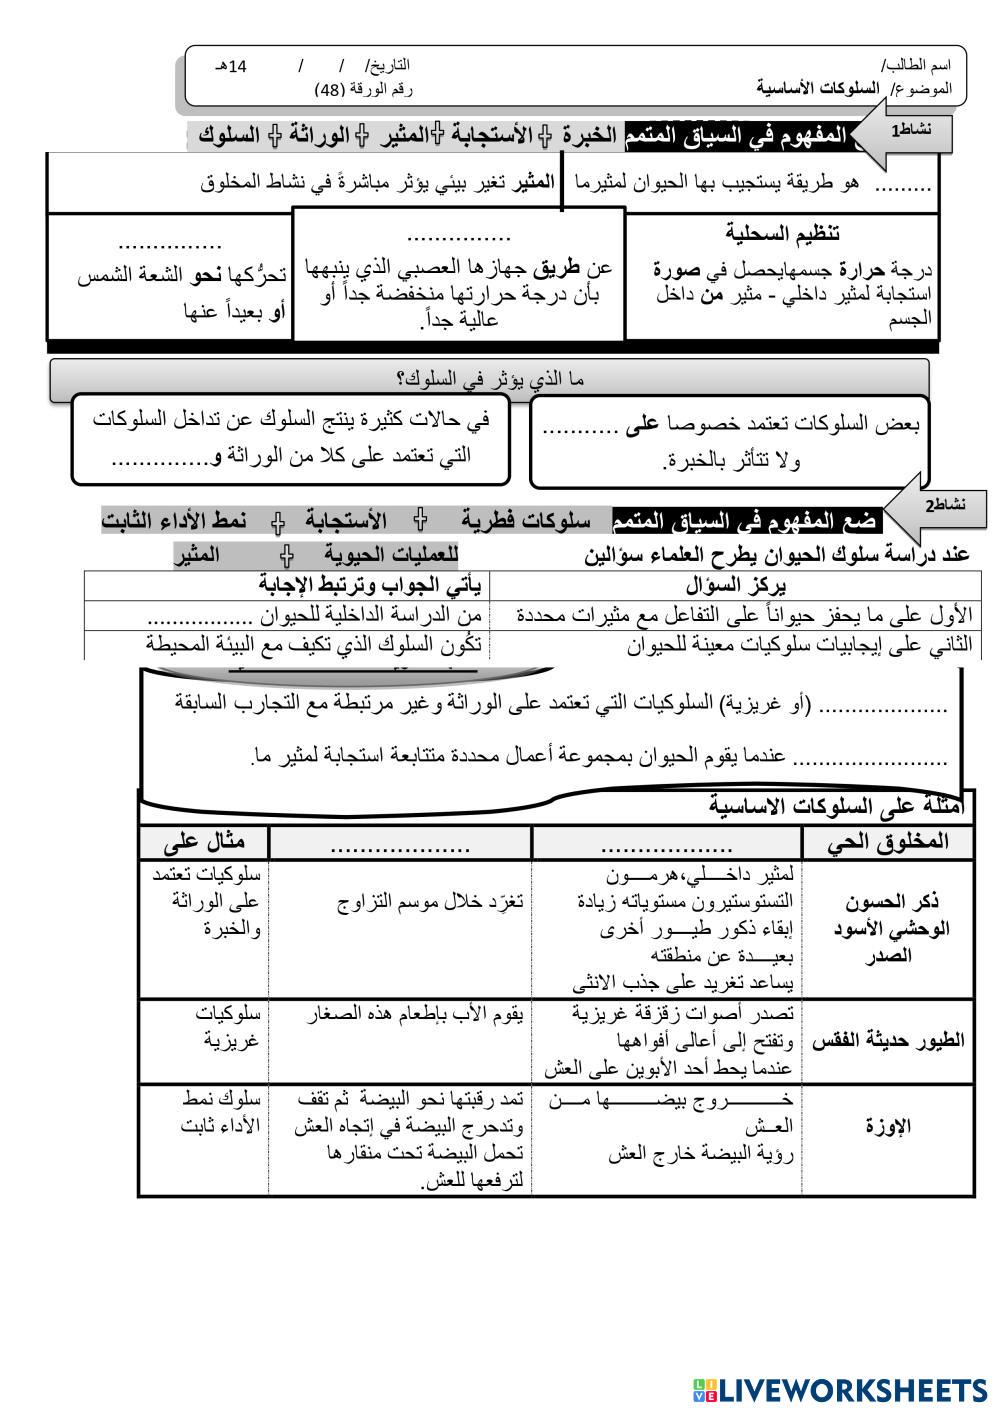 اسم الطالب/ التاريخ/ / / 14هـ
الموضوع/ السلوكات الأساسية رقم الورقة (48)
نشاط1
المفهوم في السياق المتمم الخبرة الأستجابة المثير الوراثة السلوك
......... هو طريقة يستجيب بها الحيوان لمثيرما
المثير تغير بيئي يؤثر مباشرةً في نشاط المخلوق
تنظيم السحلية
درجة حرارة جسمهايحصل في صورة
استجابة لمثير داخلي - مثير من داخل
الجسم
...............
عن طريق جهازها العصبي الذي ينبهها
بأن درجة حرارتها منخفضة جداً أو
عالية جداً.
...............
تحرُّكها نحو الشعة الشمس
أو بعيداً عنها
ما الذي يؤثر في السلوك؟
بعض السلوكات تعتمد خصوصا على ...........
ولا تتأثر بالخبرة.
في حالات كثيرة ينتج السلوك عن تداخل السلوكات
التي تعتمد على كلا من الوراثة و..............
نشاط2
ضع المفهوم في السياق المتمم سلوكات فطرية الأستجابة نمط الأداء الثابت
عند دراسة سلوك الحيوان يطرح العلماء سؤالين للعمليات الحيوية المثير
يركز السؤال يأتي الجواب وترتبط الإجابة
الأول على ما يحفز حيواناً على التفاعل مع مثيرات محددة من الدراسة الداخلية للحيوان ................
الثاني على إيجابيات سلوكيات معينة للحيوان تكُون السلوك الذي تكيف مع البيئة المحيطة
.................... (أو غريزية) السلوكيات التي تعتمد على الوراثة وغير مرتبطة مع التجارب السابقة
........................ عندما يقوم الحيوان بمجموعة أعمال محددة متتابعة استجابة لمثير ما.
امثلة على السلوكات الاساسية
المخلوق الحي ................. .................. مثال على
ذكر الحسون
الوحشي الأسود
الصدر
لمثير داخـــلي،هرمـــون
التستوستيرون مستوياته زيادة
إبقاء ذكور طيـــور أخرى
بعيـــدة عن منطقته
يساعد تغريد على جذب الانثى
تغرّد خلال موسم التزاوج
سلوكيات تعتمد
على الوراثة
والخبرة
الطيور حديثة الفقس
تصدر أصوات زقزقة غريزية
وتفتح إلى أعالى أفواهها
عندما يحط أحد الأبوين على العش
يقوم الأب بإطعام هذه الصغار
سلوكيات
غريزية
الإوزة
خــــــروج بيضــــــها مـــن
العــش
رؤية البيضة خارج العش
تمد رقبتها نحو البيضة ثم تقف
وتدحرج البيضة في إتجاه العش
تحمل البيضة تحت منقارها
لترفعها للعش.
سلوك نمط
الأداء ثابت
LIVEWORKSHEETS